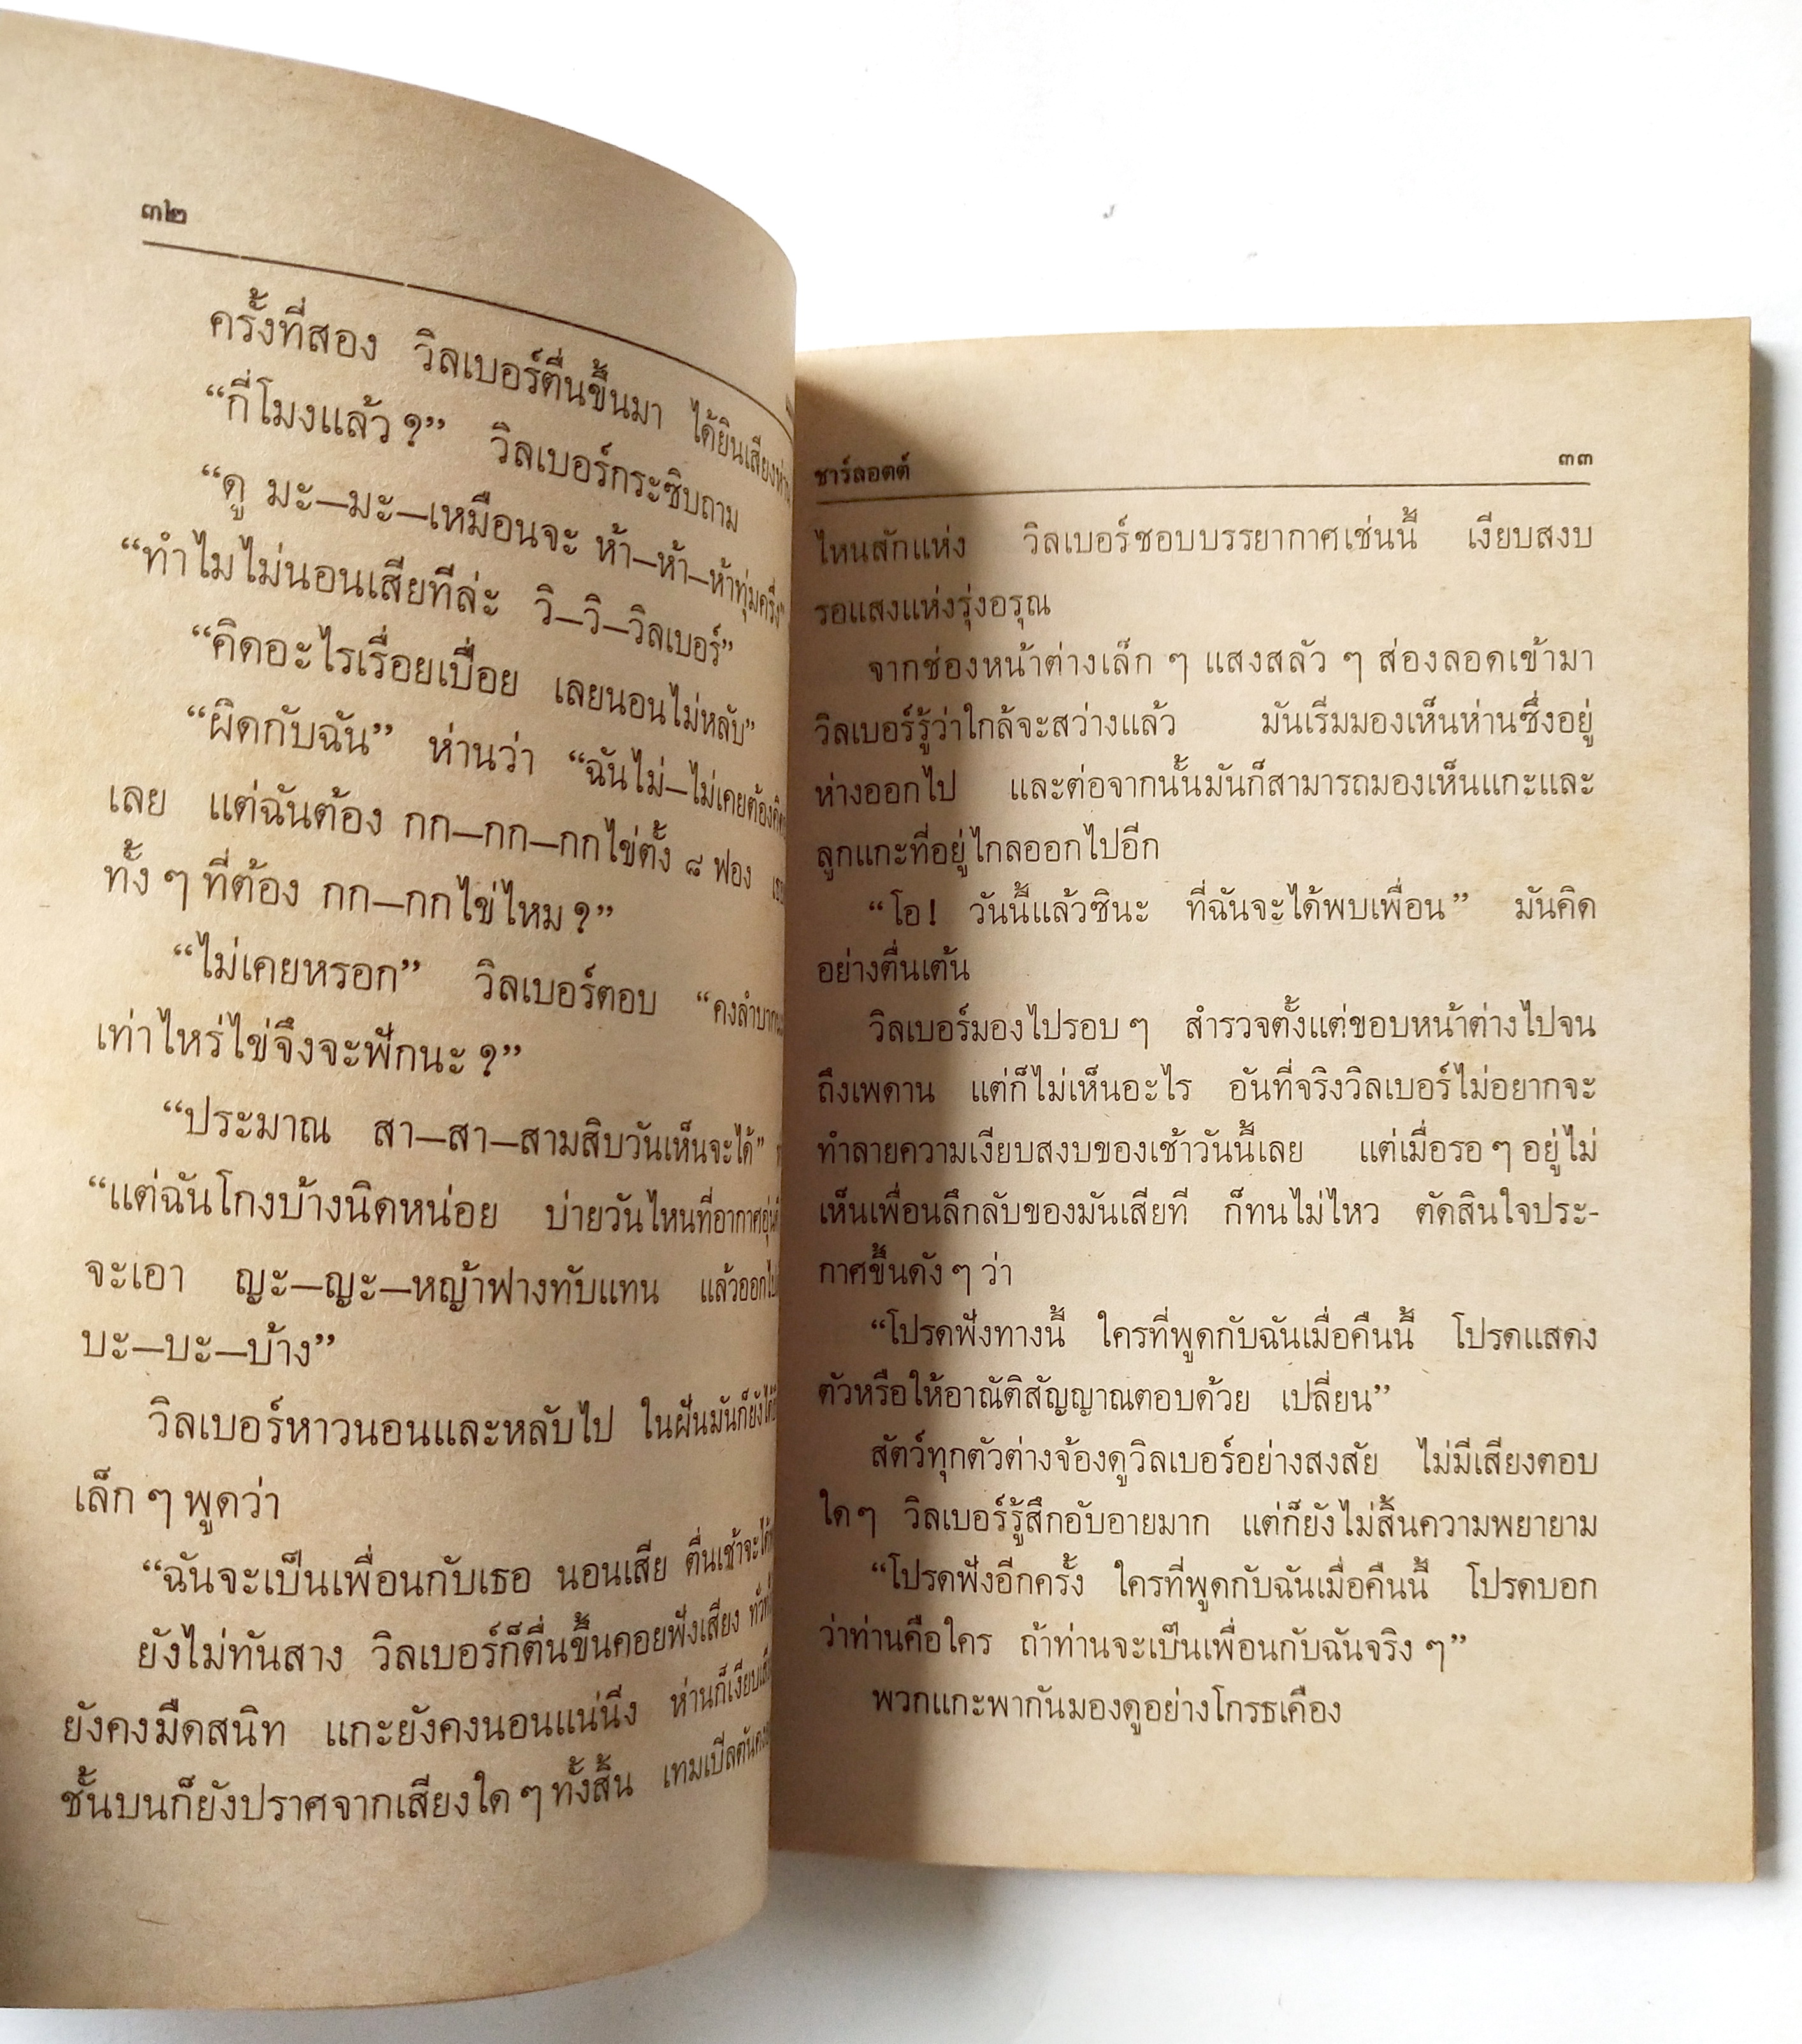 ๓๒
ครั้งที่สอง วิลเบอร์ตื่นขึ้นมา ได้ยินเสียงห่าน
“กี่โมงแล้ว ?” วิลเบอร์กระซิบถาม
“ดู มะ—มะ—เหมือนจะ ห้า—ห้า—ห้าทุ่มครึ่ง”
“ทำไมไม่นอนเสียทีล่ะ วิ—วิ—วิลเบอร์”
“คิดอะไรเรื่อยเปื่อย เลยนอนไม่หลับ”
“ผิดกับฉัน” ห่านว่า “ฉันไม่—ไม่เคยต้อง
เลย แต่ฉันต้อง กก—กก—กกไข่ตั้ง ๘ ฟอง
ทั้ง ๆ ที่ต้อง กก—กกไข่ไหม ?”
“ไม่เคยหรอก” วิลเบอร์ตอบ “คงลำบาก
เท่าไหร่ไข่จึงจะฟักนะ ?”
“ประมาณ สา—สา—สามสิบวันเห็นจะได้”
“แต่ฉันโกงบ้างนิดหน่อย บ่ายวันไหนที่อากาศ
จะเอา ญะ—ญะ—หญ้าฟางทับแทน แล้วออก
บะ—บะ—บ้าง”
วิลเบอร์หาวนอนและหลับไป ในฝันมันก็ยัง
เล็ก ๆ พูดว่า
“ฉันจะเป็นเพื่อนกับเธอ นอนเสีย ตื่นเช้าจะ
ยังไม่ทันสาง วิลเบอร์ก็ตื่นขึ้นคอยฟังเสียง
ยังคงมืดสนิท แกะยังคงนอนแน่นิ่ง ห่านก็เงียบ
ชั้นบนก็ยังปราศจากเสียงใด ๆ ทั้งสิ้น เทมเปิลตัน
ชาร์ลอตต์ ๓๓
ไหนสักแห่ง วิลเบอร์ชอบบรรยากาศเช่นนี้ เงียบสงบ
รอแสงแห่งรุ่งอรุณ
จากช่องหน้าต่างเล็ก ๆ แสงสลัว ๆ ส่องลอดเข้ามา
วิลเบอร์รู้ว่าใกล้จะสว่างแล้ว มันเริ่มมองเห็นห่านซึ่งอยู่
ห่างออกไป และต่อจากนั้นมันก็สามารถมองเห็นแกะและ
ลูกแกะที่อยู่ไกลออกไปอีก
“โอ ! วันนี้แล้วซินะ ที่ฉันจะได้พบเพื่อน” มันคิด
อย่างตื่นเต้น
วิลเบอร์มองไปรอบ ๆ สำรวจตั้งแต่ขอบหน้าต่างไปจน
ถึงเพดาน แต่ก็ไม่เห็นอะไร อันที่จริงวิลเบอร์ไม่อยากจะ
ทำลายความเงียบสงบของเช้าวันนี้เลย แต่เมื่อรอ ๆ อยู่ไม่
เห็นเพื่อนลึกลับของมันเสียที ก็ทนไม่ไหว ตัดสินใจประ-
กาศขึ้นดัง ๆ ว่า
“โปรดฟังทางนี้ ใครที่พูดกับฉันเมื่อคืนนี้ โปรดแสดง
ตัวหรือให้อาณัติสัญญาณตอบด้วย เปลี่ยน”
สัตว์ทุกตัวต่างจ้องดูวิลเบอร์อย่างสงสัย ไม่มีเสียงตอบ
ใด ๆ วิลเบอร์รู้สึกอับอายมาก แต่ก็ยังไม่สิ้นความพยายาม
“โปรดฟังอีกครั้ง ใครที่พูดกับฉันเมื่อคืนนี้ โปรดบอก
ว่าท่านคือใคร ถ้าท่านจะเป็นเพื่อนกับฉันจริง ๆ”
พวกแกะพากันมองดูอย่างโกรธเคือง